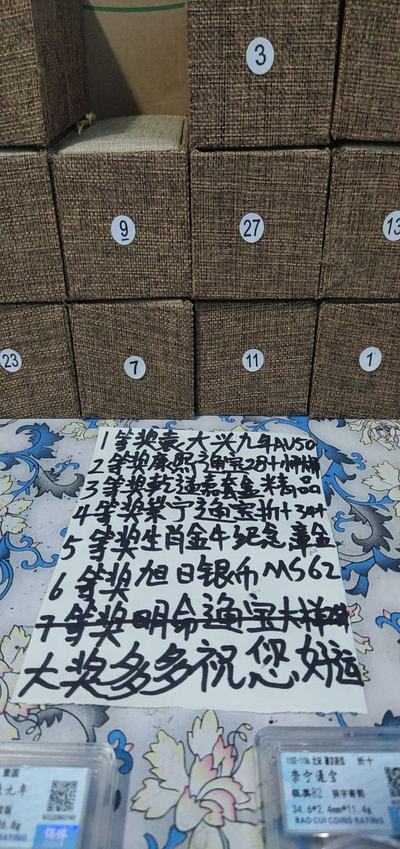 3
9
27
13
23
7
11
1
1等奖袁大头九年AU50
2等奖康熙通宝28+
3等奖乾通嘉套盒精品
4等奖崇宁通宝折十
5等奖生肖金牛纪念章金
6等奖旭日银币MS62
7等奖明命通宝大样
大奖多多祝您好运
九年
6.8g
RATING
崇宁通宝
折十
美82
34.6*2.4mm*11.4g
BAO CUI COINS RATING